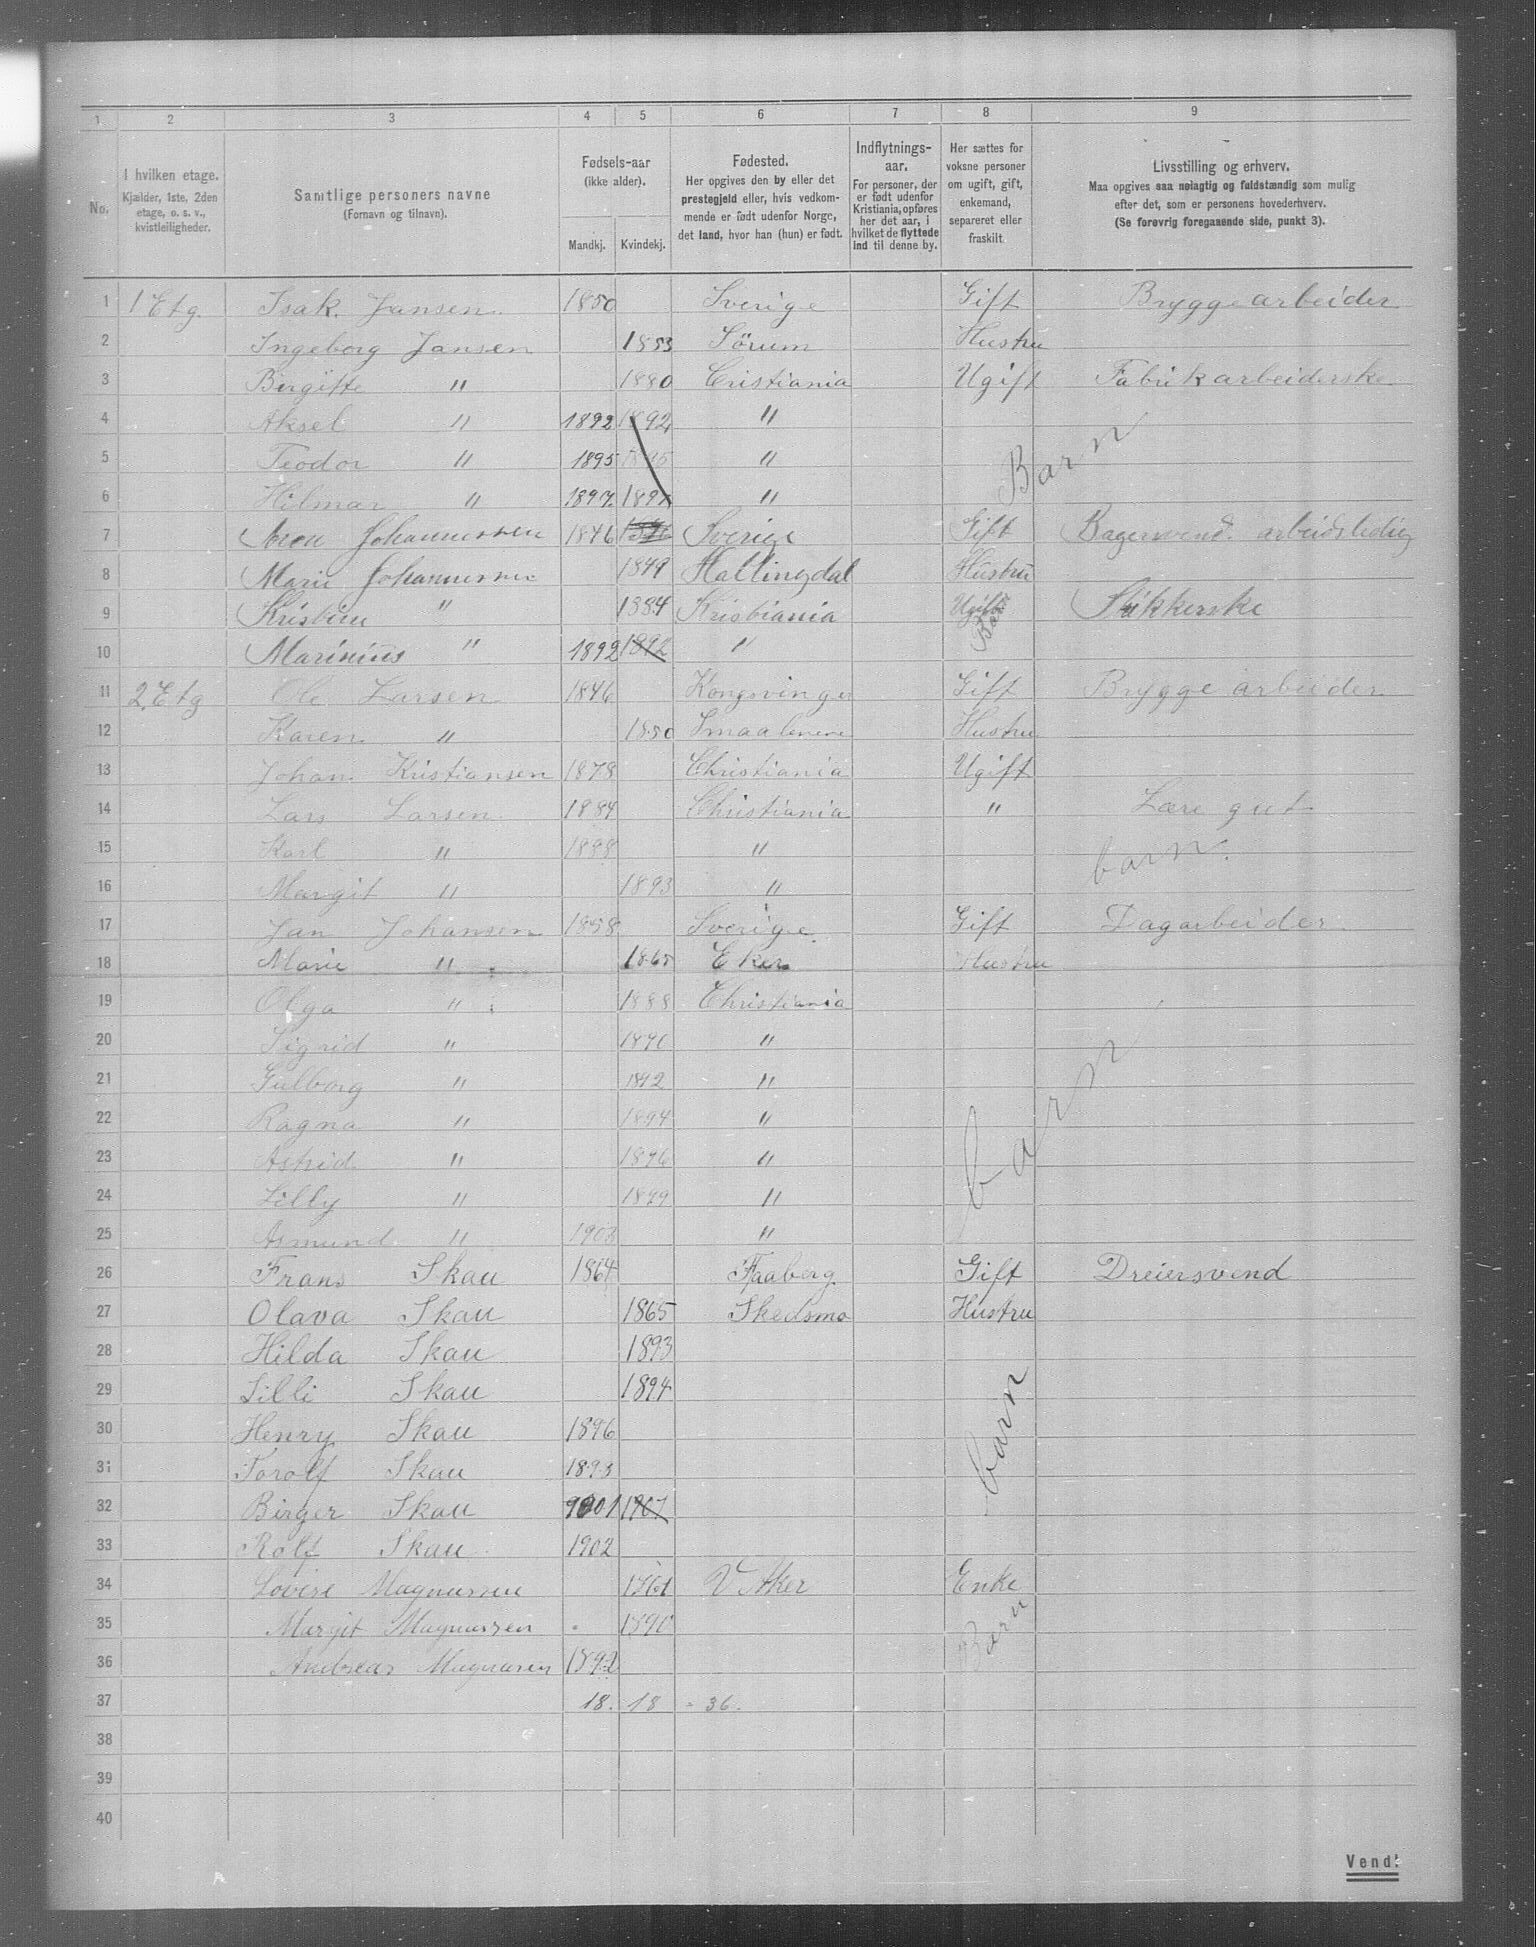 1 2 3 4 5 6 7 8 9
No.
I hvilken etage.
Kjælder, 1ste, 2den
etage, o. s. v.,
kvistleiligheder.
Samtlige personers navne
(Fornavn og tilnavn).
Fødsels-aar
(ikke alder).
Mandkj. Kvindekj.
Fødested.
Her opgives den by eller det
prestegjeld eller, hvis vedkom-
mende er født udenfor Norge,
det land, hvor han (hun) er født.
Indflytnings-
aar.
For personer, der
er født udenfor
Kristiania, opføres
her det aar, i
hvilket de flyttede
ind til denne by.
Her sættes for
voksne personer
om ugift, gift,
enkemand,
separeret eller
fraskilt.
Livsstilling og erhverv.
Maa opgives saa nøiagtig og fuldstændig som mulig
efter det, som er personens hovederhverv.
(Se forøvrig foregaaende side, punkt 3).
1 1 Etg. Isak. Jansen 1850 Sverige Gift Bryggearbeider
2 Ingeborg Jansen 1853 Sörum Hustru
3 Birgitte " 1880 Cristiania Ugift Fabrikarbeiderske
4 Aksel " 1892 1892 "
5 Teodor " 1895 "
6 Hilmar " 1897. 1897 "
Barn
7 Johannessen 1846 Sverige Gift Bagersvend. arbeidsledig
8 Marie Johannessen 1849 Hallingdal Hustru
9 Kristine " 1884 Kristiania Ugift
10 Marinius " 1892 1892 "
Barn
11 2. Etg Ole Larsen 1846 Kongsvinger Gift Bryggearbeider
12 Karen " 1850 Smaalenene Hustru
13 Johan Kristiansen 1878 Christiania Ugift
14 Lars Larsen 1884 Christiania " Lære gut
15 Karl " 1888 "
16 Margit " 1893 "
barn.
17 Jan Johansen 1858 Sverige Gift Dagarbeider
18 Marie " 1865 Eker Hustru
19 Olga " 1888 Christiania
20 Sigrid " 1890 "
21 Gulborg " 1892 "
22 Ragna " 1894 "
23 Astrid " 1896 "
24 Lilly " 1899 "
25 Asmund " 1903 "
barn
26 Frans Skau 1864 Faaberg Gift Dreiersvend
27 Olava Skau 1865 Skedsmo Hustru
28 Hilda Skau 1893
29 Lilli Skau 1894
30 Henry Skau 1896
31 Torolf Skau 1893
32 Birger Skau 1901 1901
33 Rolf Skau 1902
barn
34 Lovise Magnussen 1861 V Aker Enke
35 Margit Magnussen 1890
36 Andreas Magnussen 1892
Barn
37 18. 18 = 36.
38
39
40
Vend!